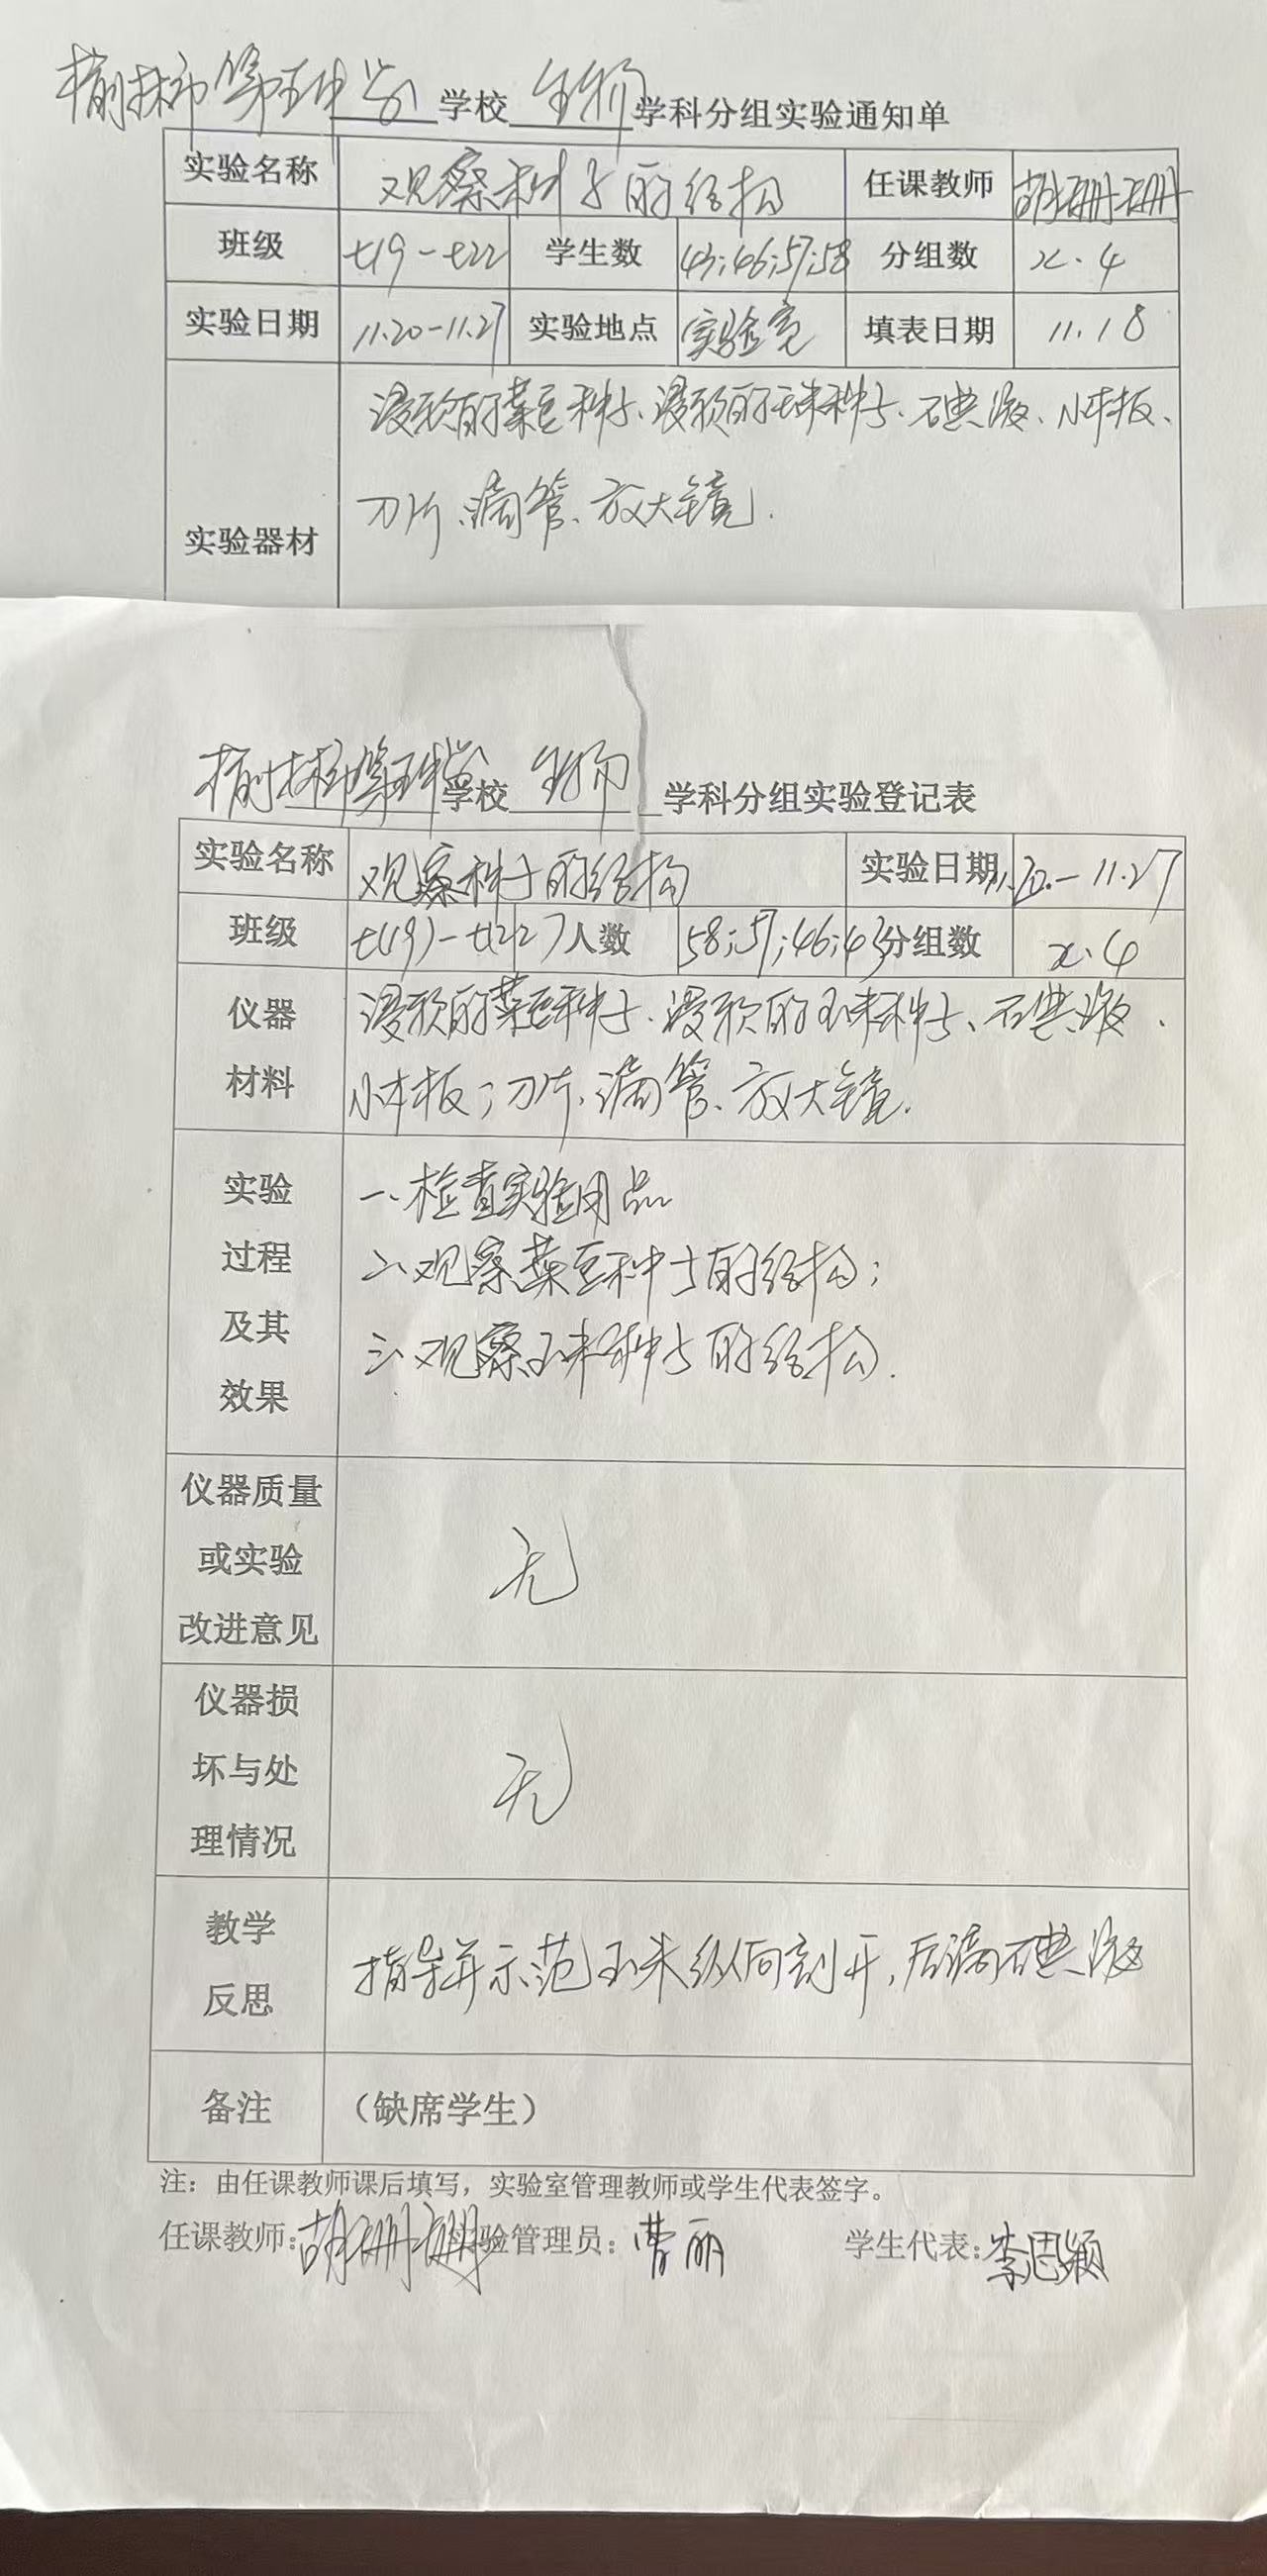 榆林市第五中学学校 生物 学科分组实验通知单
实验名称 观察种子的结构 任课教师 胡珊珊
班级 七19-七22 学生数 43;46;57;58 分组数 x.4
实验日期 11.20-11.27 实验地点 实验室 填表日期 11.18
浸软的菜豆种子、浸软的玉米种子、碘液、小木板、
刀片、滴管、放大镜.
实验器材
榆林市第五中学学校 生物 学科分组实验登记表
实验名称 观察种子的结构 实验日期 11.20.-11.27
班级 七(19)-七(22) 人数 58;57;46;43 分组数 x.4
仪器 浸软的菜豆种子、浸软的玉米种子、碘液、
材料 小木板;刀片、滴管、放大镜.
实验 一、检查实验用品
过程 二、观察菜豆种子的结构;
及其 三、观察玉米种子的结构.
效果
仪器质量
或实验 无
改进意见
仪器损
坏与处 无
理情况
教学 指导并示范玉米纵向刻开,后滴碘液
反思
备注 (缺席学生)
注：由任课教师课后填写，实验室管理教师或学生代表签字。
任课教师:胡珊珊 实验管理员:曹丽 学生代表:李思颖